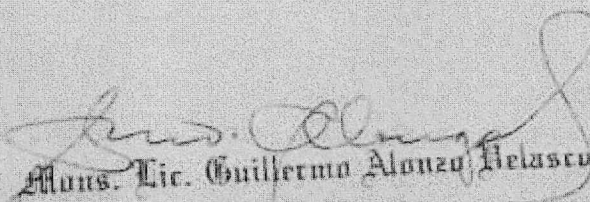 Mons. Lic. Guillermo Alonzo Velasco